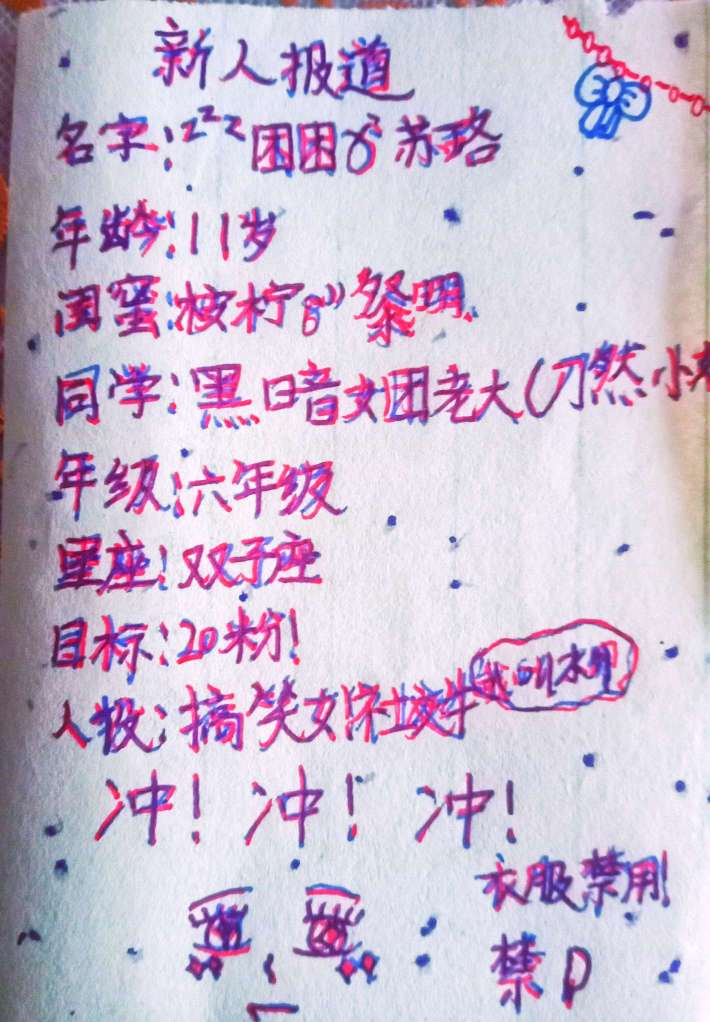 新人报道
名字:zzz困困 苏珞
年龄:11岁
闺蜜:桉柠 黎明
同学:黑暗女团老大(刀然小
年级:六年级
星座:双子座
目标:20粉!
人设:搞笑女 社交牛
冲!冲!冲!
衣服禁用!
禁P